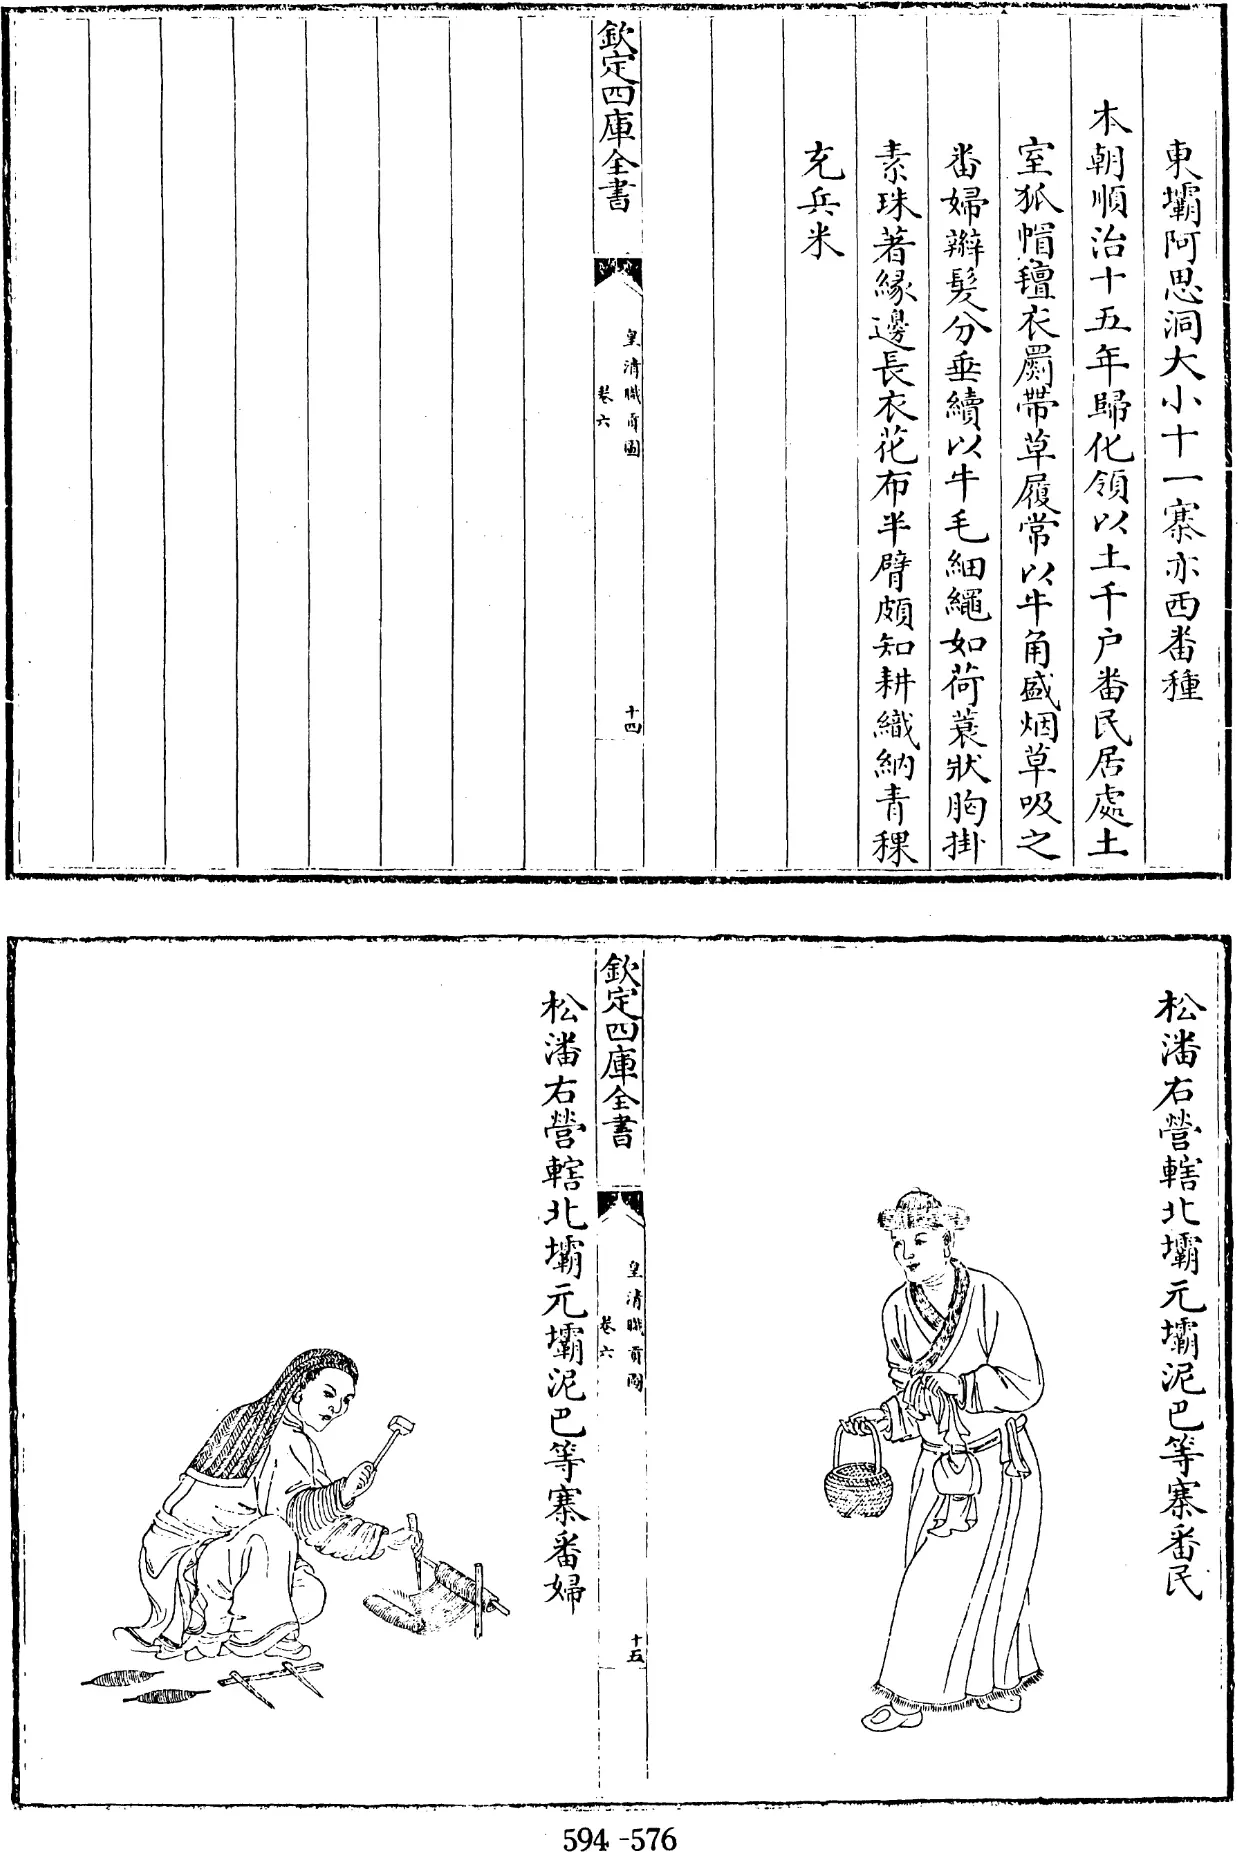 東壩阿思洞大小十一寨亦西番種
本朝順治十五年歸化領以土千户番民居處土
室狐帽氊衣罽帶草履常以牛角盛烟草吸之
番婦辮髮分垂續以牛毛細繩如荷蓑狀胸掛
素珠著緣邊長衣花布半臂頗知耕織納青稞
充兵米
欽定四庫全書
皇清職貢圖
卷六
十四
松潘右營轄北壩元壩泥巴等寨番民
欽定四庫全書
皇清職貢圖
卷六
十五
松潘右營轄北壩元壩泥巴等寨番婦
594-576